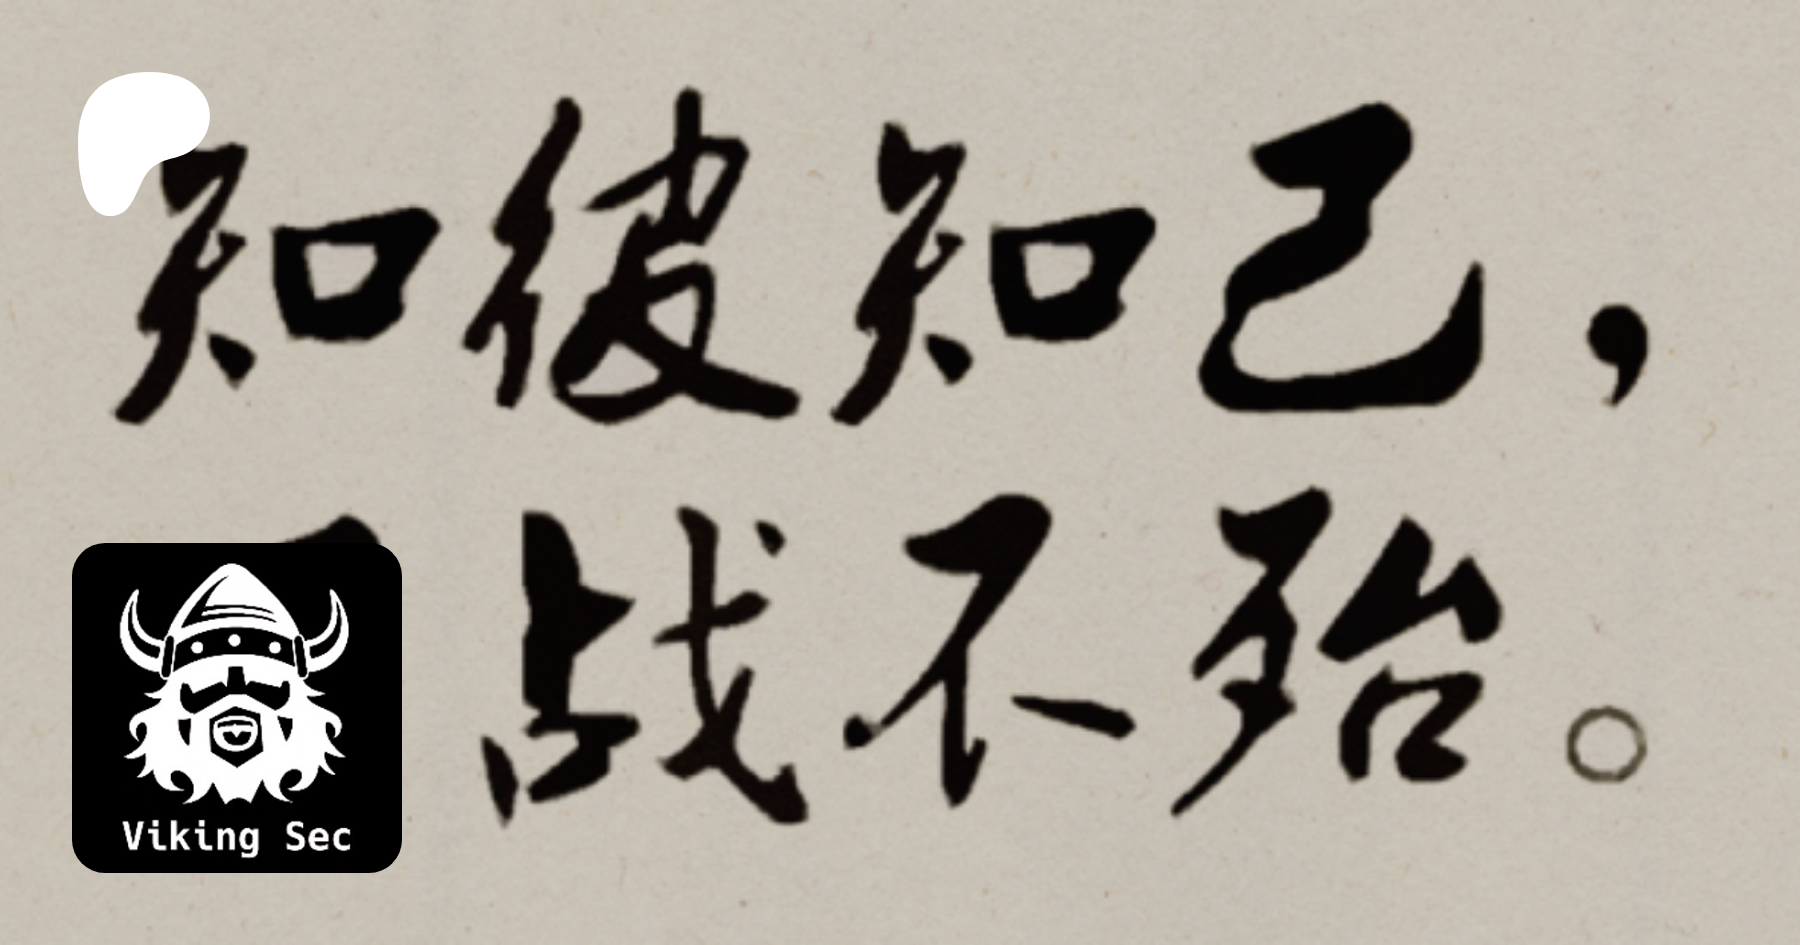 知彼知己，
战不殆。
Viking Sec